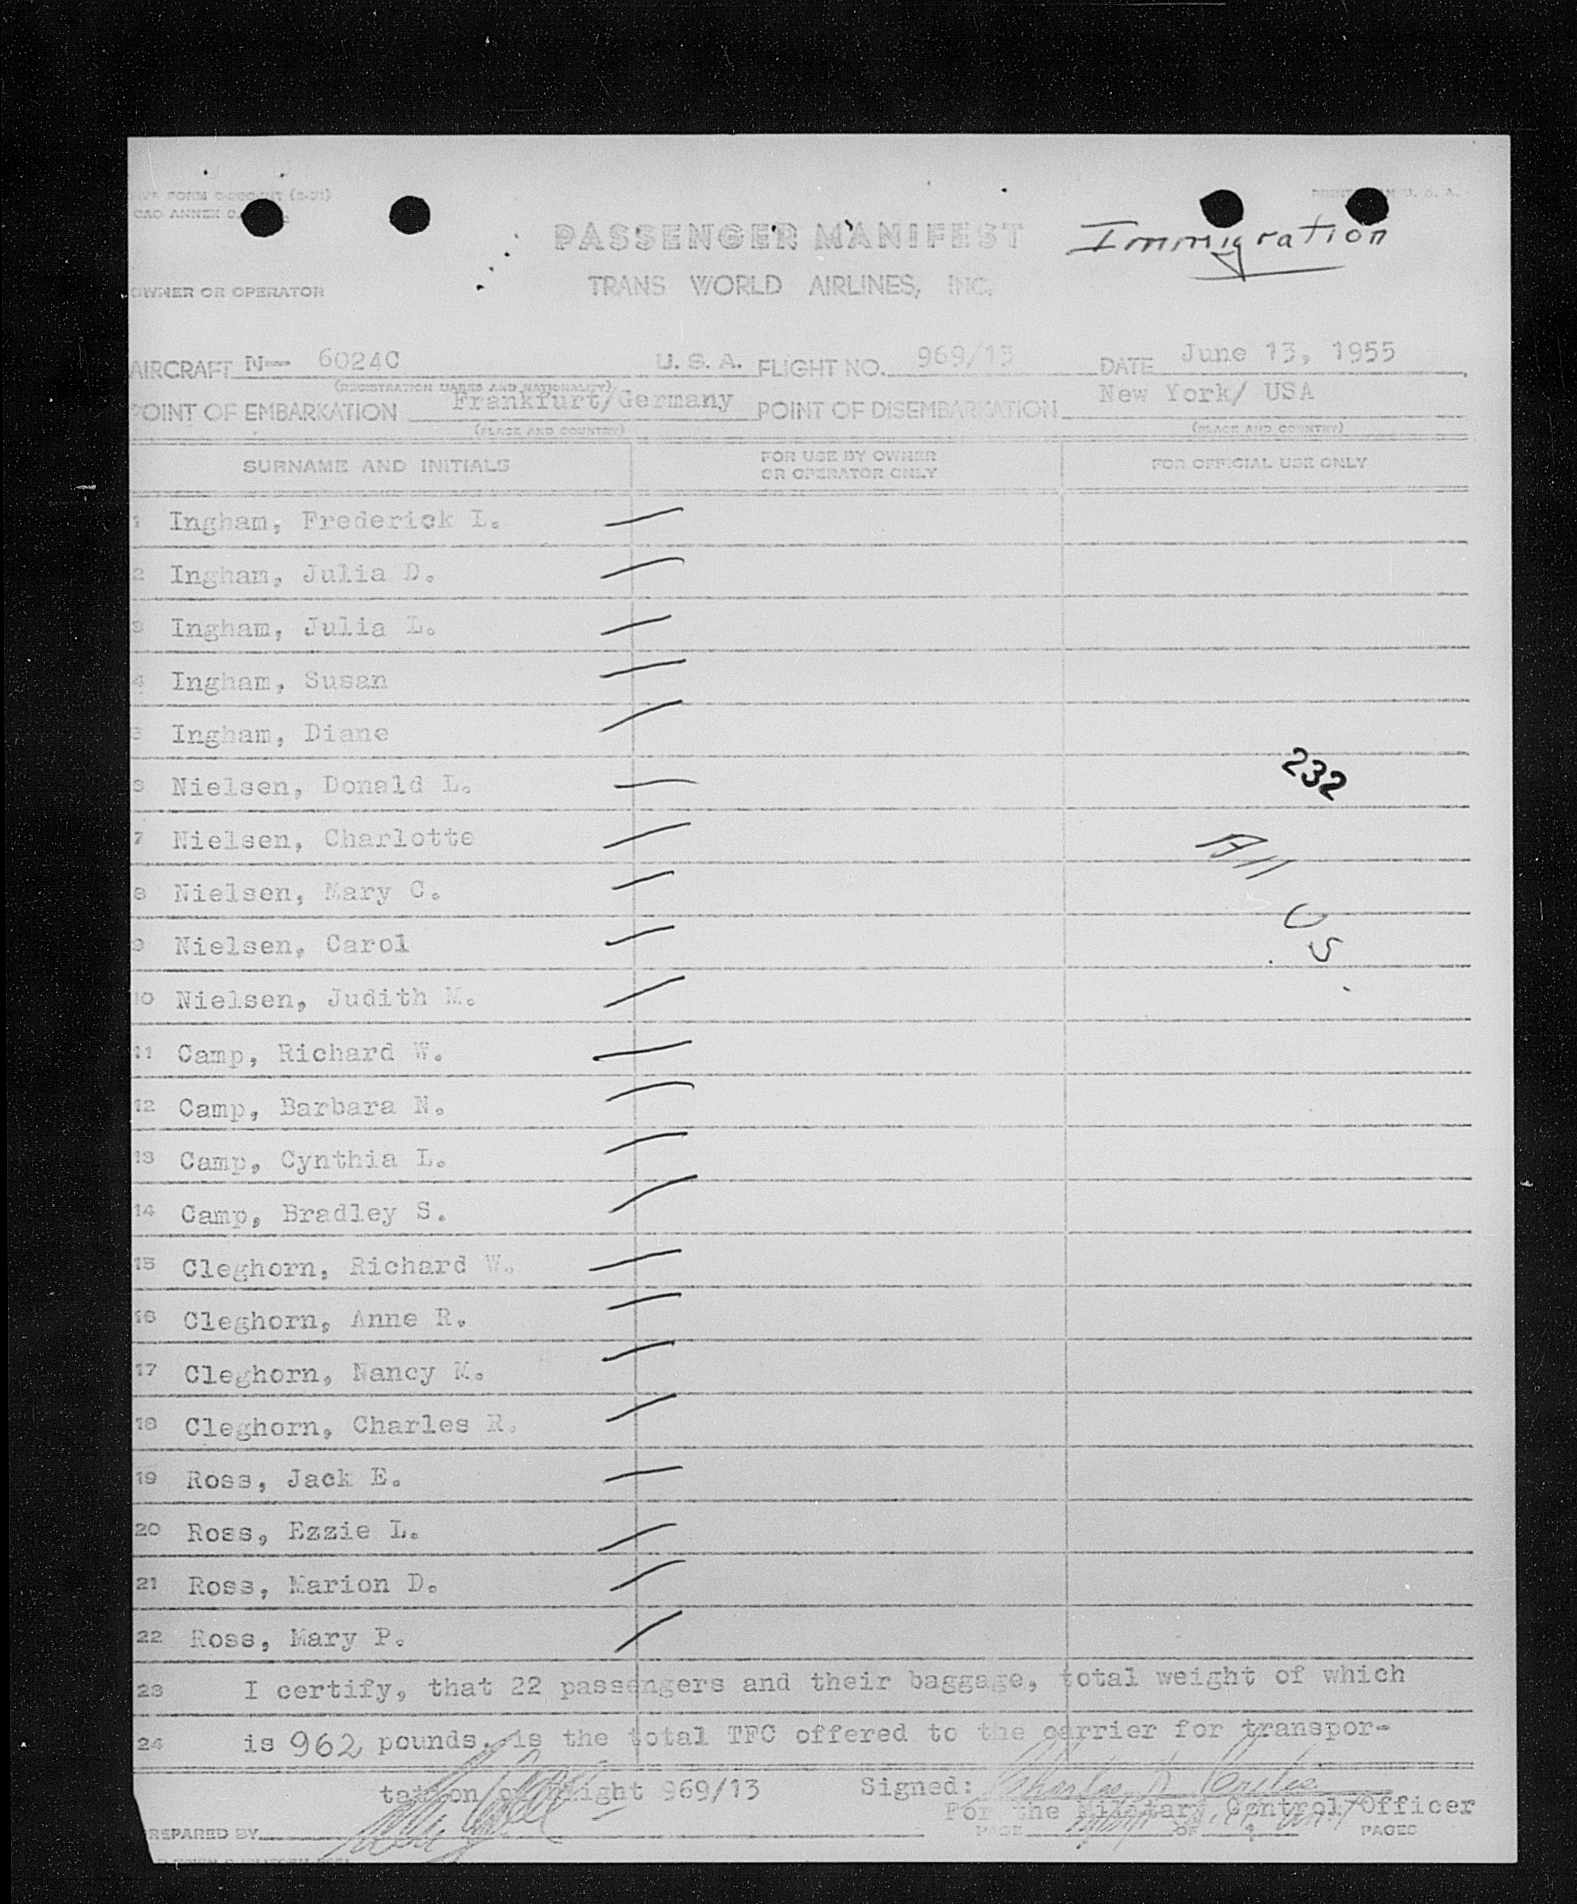 PRINTED IN U. S. A.
PASSENGER MANIFEST
Immigration
TRANS WORLD AIRLINES, INC.
OWNER OR OPERATOR
AIRCRAFT N-- 6024C U. S. A. FLIGHT NO. 969/13 DATE June 13, 1955
(REGISTRATION MARKS AND NATIONALITY)
POINT OF EMBARKATION Frankfurt/Germany POINT OF DISEMBARKATION New York/ USA
(PLACE AND COUNTRY) (PLACE AND COUNTRY)
SURNAME AND INITIALS FOR USE BY OWNER OR OPERATOR ONLY FOR OFFICIAL USE ONLY
1 Ingham, Frederick L.
2 Ingham, Julia D.
3 Ingham, Julia L.
4 Ingham, Susan
5 Ingham, Diane
232
6 Nielsen, Donald L.
7 Nielsen, Charlotte
All
8 Nielsen, Mary C.
US
9 Nielsen, Carol
10 Nielsen, Judith M.
11 Camp, Richard W.
12 Camp, Barbara N.
13 Camp, Cynthia L.
14 Camp, Bradley S.
15 Cleghorn, Richard W.
16 Cleghorn, Anne R.
17 Cleghorn, Nancy M.
18 Cleghorn, Charles R.
19 Ross, Jack E.
20 Ross, Ezzie L.
21 Ross, Marion D.
22 Ross, Mary P.
23 I certify, that 22 passengers and their baggage, total weight of which
24 is 962 pounds, is the total TFC offered to the carrier for transpor-
tation on flight 969/13 Signed: Charles
For the Military Control Officer
PREPARED BY PAGE OF 1 PAGES